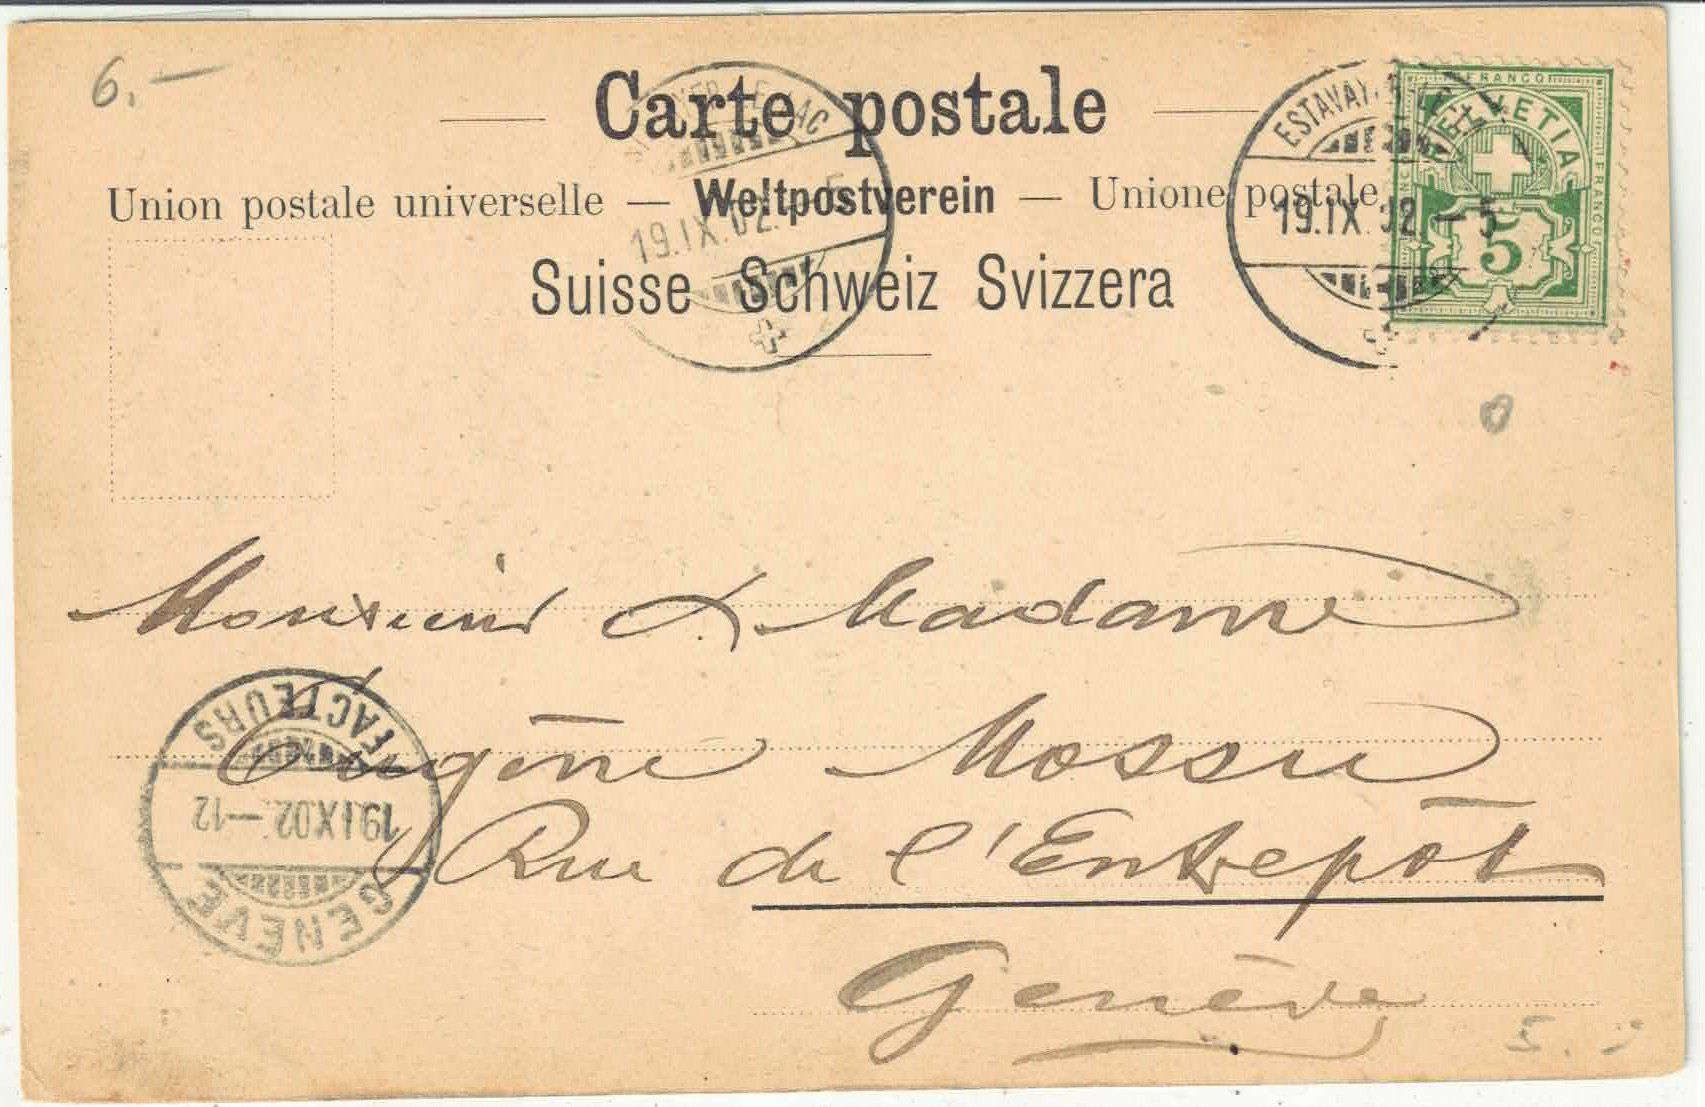 6.—
Carte postale
Union postale universelle — Weltpostverein — Unione postale
Suisse Schweiz Svizzera
LE-LAC
19.IX.02.-5
ESTAVAYER-LE
19.IX.02.-5
FRANCO
HELVETIA
FRANCO
5
Monsieur & Madame
Eugène Mossu
Rue de l'Entrepôt
Genève
FACTEURS
19.IX.02.-12
GENÈVE